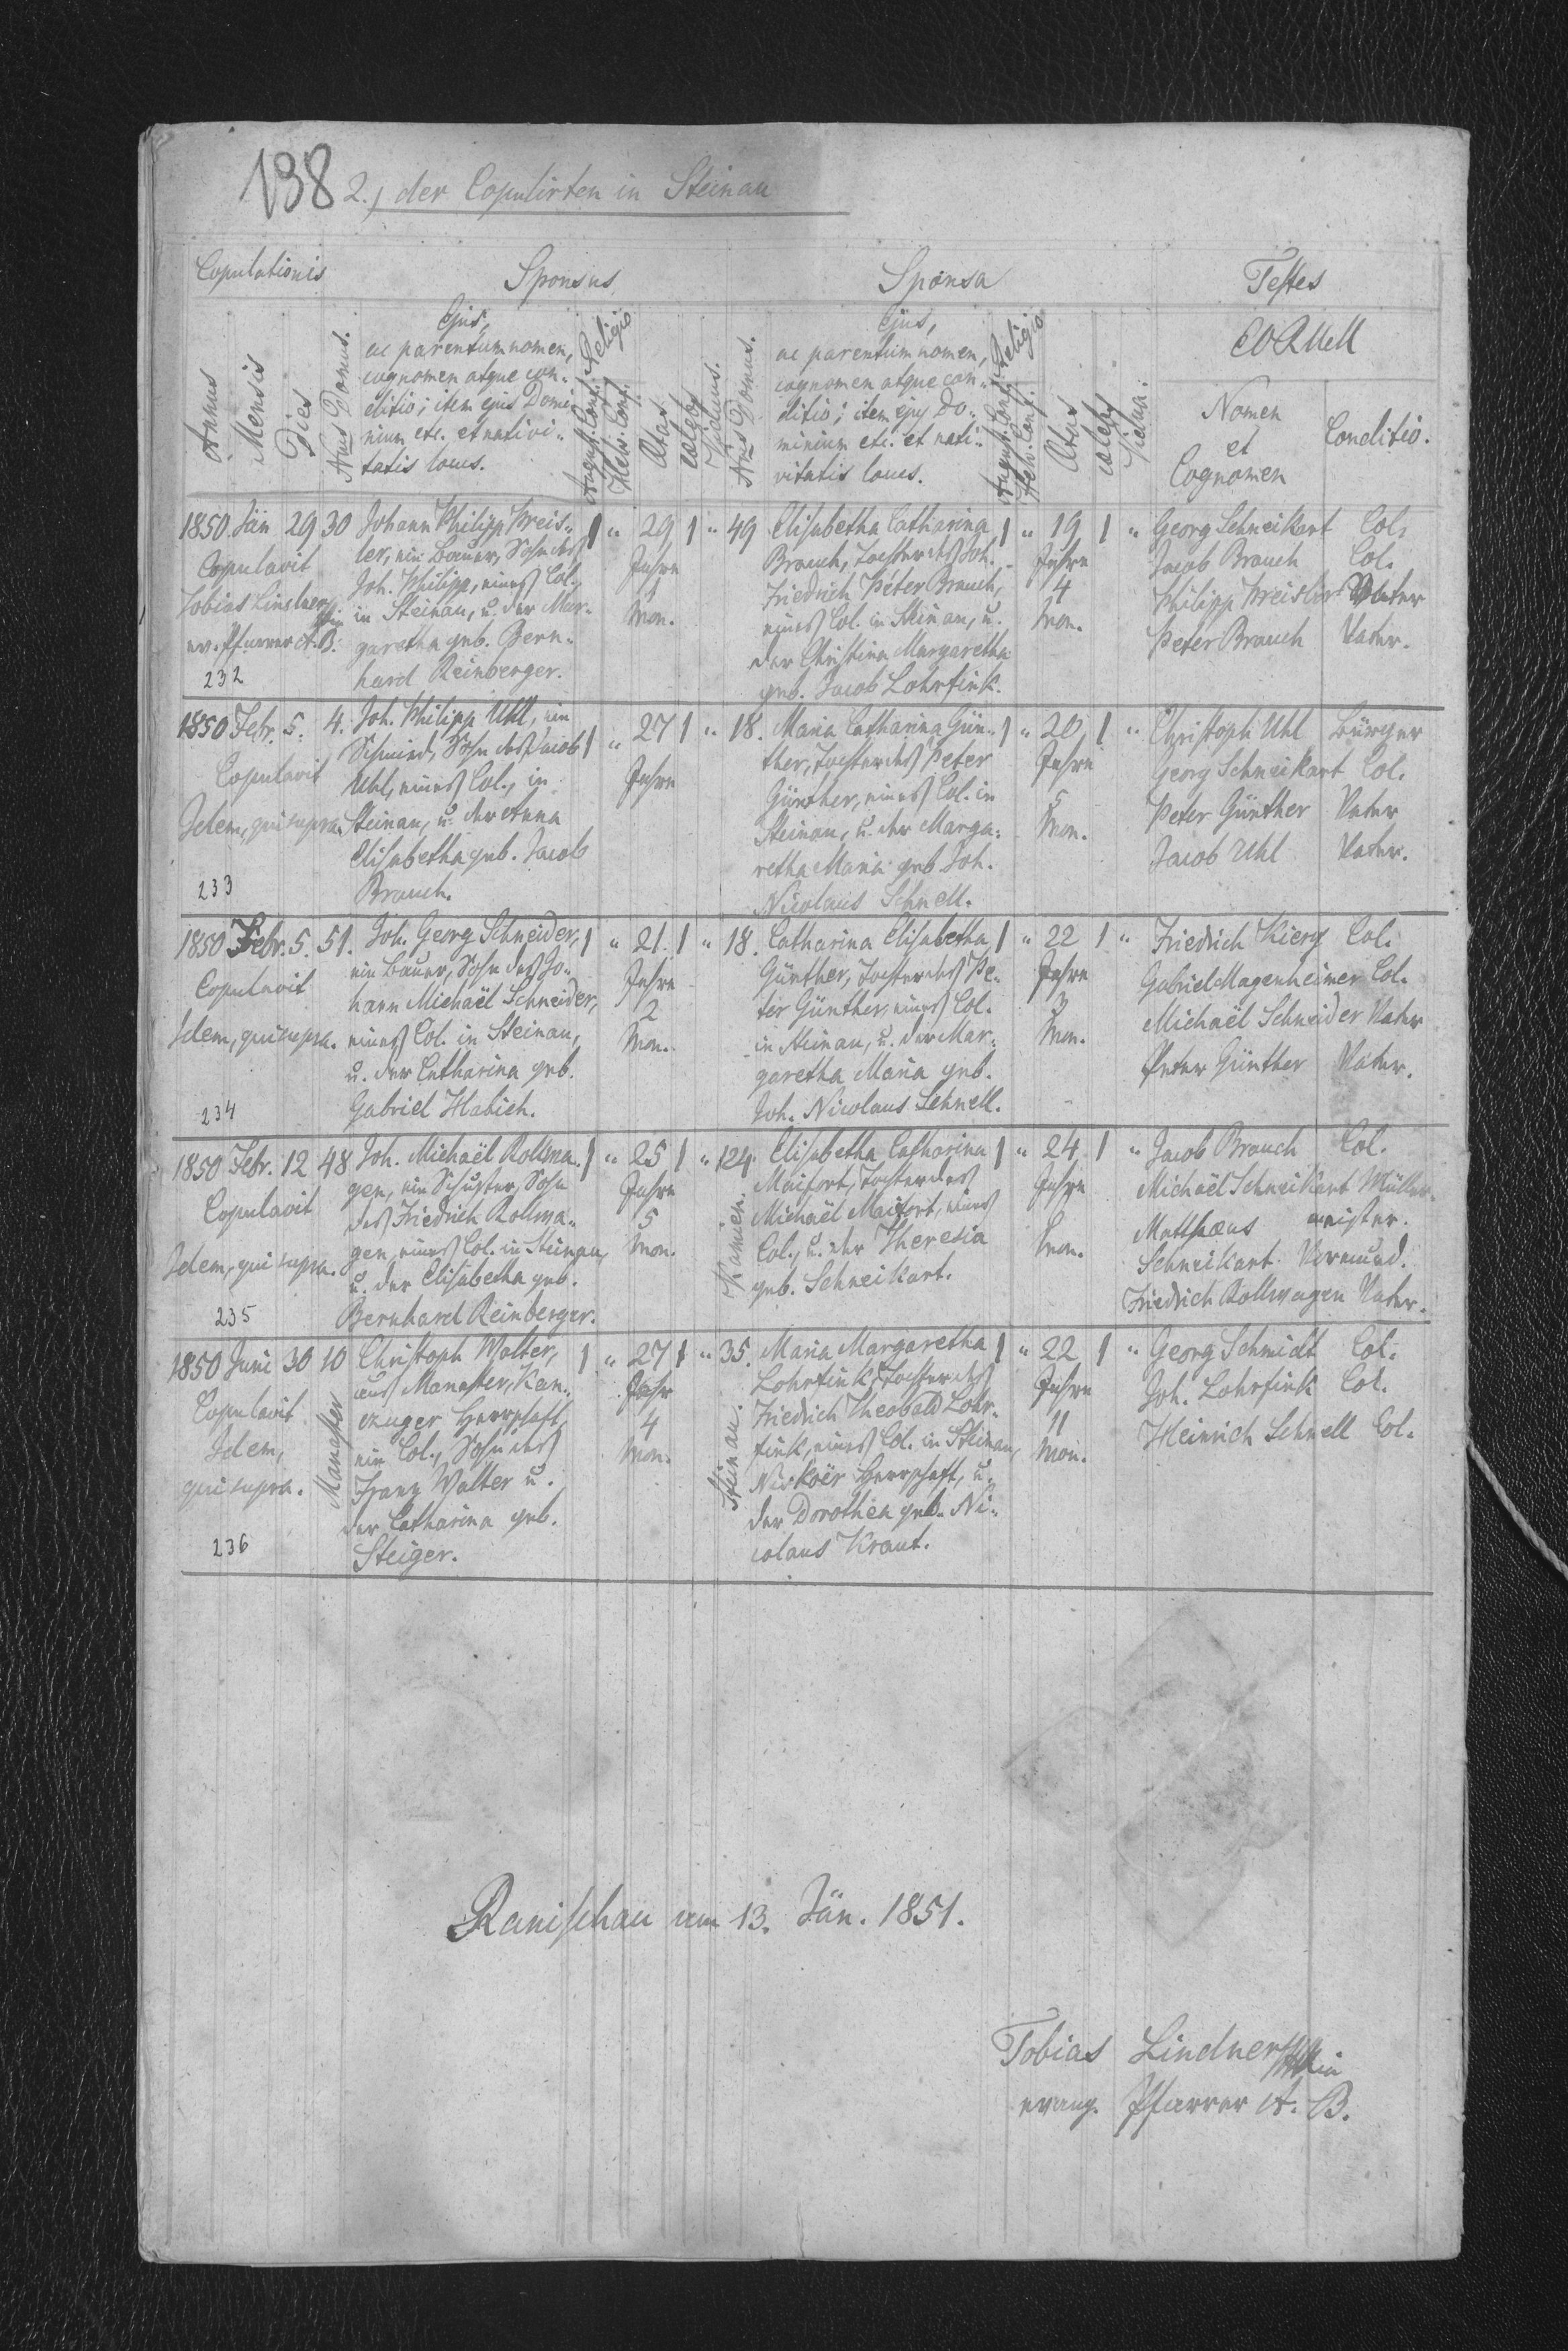 138 2.) der Copulirten in Steinau
Copulationis Sponsus Sponsa Testes
Annus Mensis Dies Nrus Domus.
Ejus,
ac parentum nomen,
cognomen atque con-
ditio; item ejus Domi-
nium etc. et nativi-
tatis locus.
Religio
August. Conf.
Helv. Conf.
Ætas
cœlebs
Viduus.
Nrus Domus.
Ejus,
ac parentum nomen,
cognomen atque con-
ditio; item ejus Do-
minium etc. et nati-
vitatis locus.
Religio
August. Conf.
Helv. Conf.
Ætas
cœlebs
Vidua.
Nomen
et
Cognomen
Conditio.
1850 Jän 29 30
Copulavit
Tobias Lindner
ev. Pfarrer A. B.
232
Johann Philipp Kreis-
ler, ein Bauer, Sohn des
Joh. Philipp, eines Col.
in Steinau, u. der Mar-
garetha geb. Bern-
hard Reinberger.
1 " 29 1 "
Jahre
1
Mon.
49
Elisabetha Catharina
Brauch, Tochter des Joh.
Friedrich Peter Brauch,
eines Col. in Steinau, u.
der Christina Margaretha
geb. Jacob Lohrfink.
1 " 19 1 "
Jahre
4
Mon.
Georg Schneikart Col.
Jacob Brauch Col.
Philipp Kreisler Vater
Peter Brauch Vater.
1850 Febr. 5. 4.
Copulavit
Idem, qui supra.
233
Joh. Philipp Uhl, ein
Schmied, Sohn des Jacob
Uhl, eines Col., in
Steinau, u. der Anna
Elisabetha geb. Jacob
Brauch.
1 " 27 1 "
Jahre
18.
Maria Catharina Gün-
ther, Tochter des Peter
Günther, eines Col. in
Steinau, u. der Marga-
retha Maria geb. Joh.
Nicolaus Schnell.
1 " 20 1 "
Jahre
5
Mon.
Christoph Uhl Bürger
Georg Schneikart Col.
Peter Günther Vater
Jacob Uhl Vater.
1850 Febr. 5. 51.
Copulavit
Idem, qui supra.
234
Joh. Georg Schneider,
ein Bauer, Sohn des Jo-
hann Michaël Schneider,
eines Col. in Steinau,
u. der Catharina geb.
Gabriel Habich.
1 " 21. 1 "
Jahre
2
Mon.
18.
Catharina Elisabetha
Günther, Tochter des Pe-
ter Günther, eines Col.
in Steinau, u. der Mar-
garetha Maria geb.
Joh. Nicolaus Schnell.
1 " 22 1 "
Jahre
3
Mon.
Friedrich Kierg Col.
Gabriel Magenheimer Col.
Michaël Schneider Vater
Peter Günther Vater.
1850 Febr. 12 48
Copulavit
Idem, qui supra.
235
Joh. Michaël Rollwa-
gen, ein Schuster, Sohn
des Friedrich Rollwa-
gen, eines Col. in Steinau,
u. der Elisabetha geb.
Bernhard Reinberger.
1 " 25 1 "
Jahre
5
Mon.
124.
Kamien.
Elisabetha Catharina
Maifort, Tochter des
Michaël Maifort, eines
Col., u. der Theresia
geb. Schneikart.
1 " 24 1 "
Jahre
Mon.
Jacob Brauch Col.
Michaël Schneikart Müller-
Matthæus meister.
Schneikart Vormund.
Friedrich Rollwagen Vater.
1850 Juni 30 10
Copulavit
Idem,
qui supra.
236
Manaster
Christoph Walter,
aus Manaster, Kan-
czuger Herrschaft,
ein Col., Sohn des
Franz Walter u.
der Catharina geb.
Steiger.
1 " 27 1 "
Jahr
4
Mon.
35.
Steinau.
Maria Margaretha
Lohrfink, Tochter des
Friedrich Theobald Lohr-
fink, eines Col. in Steinau,
Niskoër Herrschaft, u.
der Dorothea geb. Ni-
colaus Kraut.
1 " 22 1 "
Jahre
11
Mon.
Georg Schmidt Col.
Joh. Lohrfink Col.
Heinrich Schnell Col.
Ranischau am 13. Jän. 1851.
Tobias Lindner
evang. Pfarrer A. B.